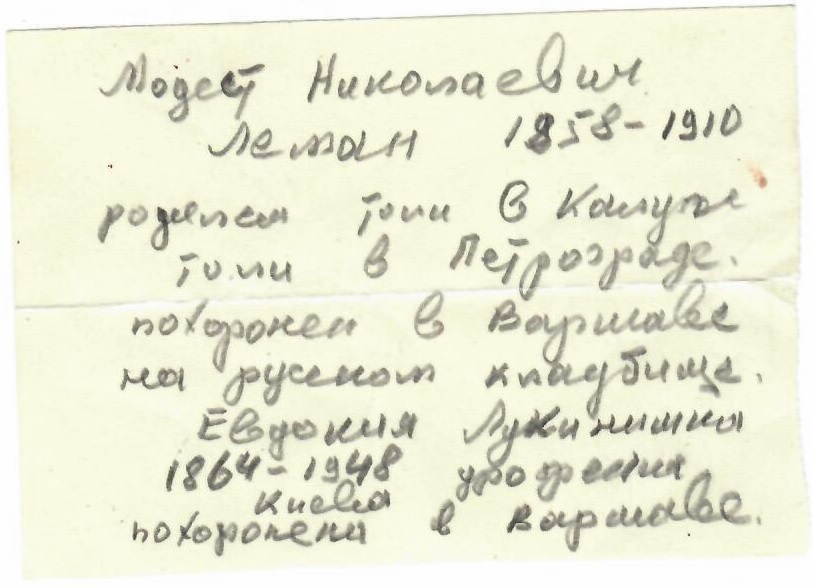 Модест Николаевич
Леман 1858-1910
родился толи в Калуге
толи в Петрограде.
похоронен в Варшаве
на русском кладбище.
Евдокия Лукинишна
1864-1948
Киева
похоронена в Варшаве.